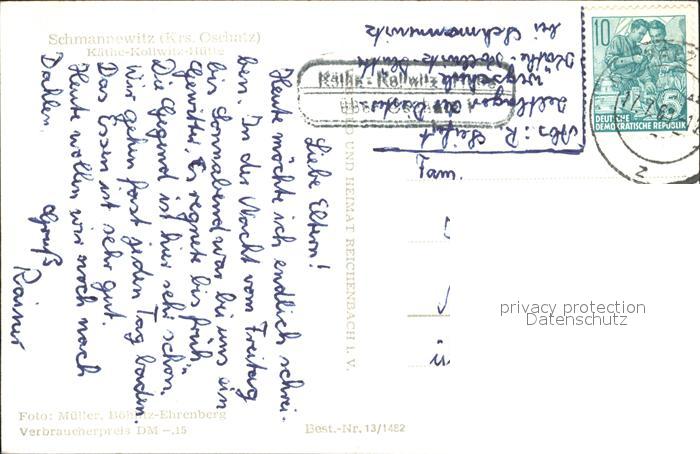 Schmannewitz (Krs. Oschatz)
Käthe-Kollwitz-Hütte
Liebe Eltern!
Heute möchte ich endlich schrei-
ben. In der Nacht vom Freitag
bis Sonnabend war bei uns ein
Gewitter. Es regnete bis früh.
Die Gegend ist hier sehr schön.
Wir gehen fast jeden Tag baden.
Das Essen ist sehr gut.
Heute wollen wir noch nach
Dahlen.
Gruß
Rainer
Foto: Müller, Böhlitz-Ehrenberg
Verbraucherpreis DM -.15
Best.-Nr. 13/1482
UND HEIMAT REICHENBACH i. V.
Käthe-Kollwitz
Abs.: R. Seifert
bei Schmannewitz
10
5
DEUTSCHE
DEMOKRATISCHE REPUBLIK
Fam.
ü
privacy protection
Datenschutz